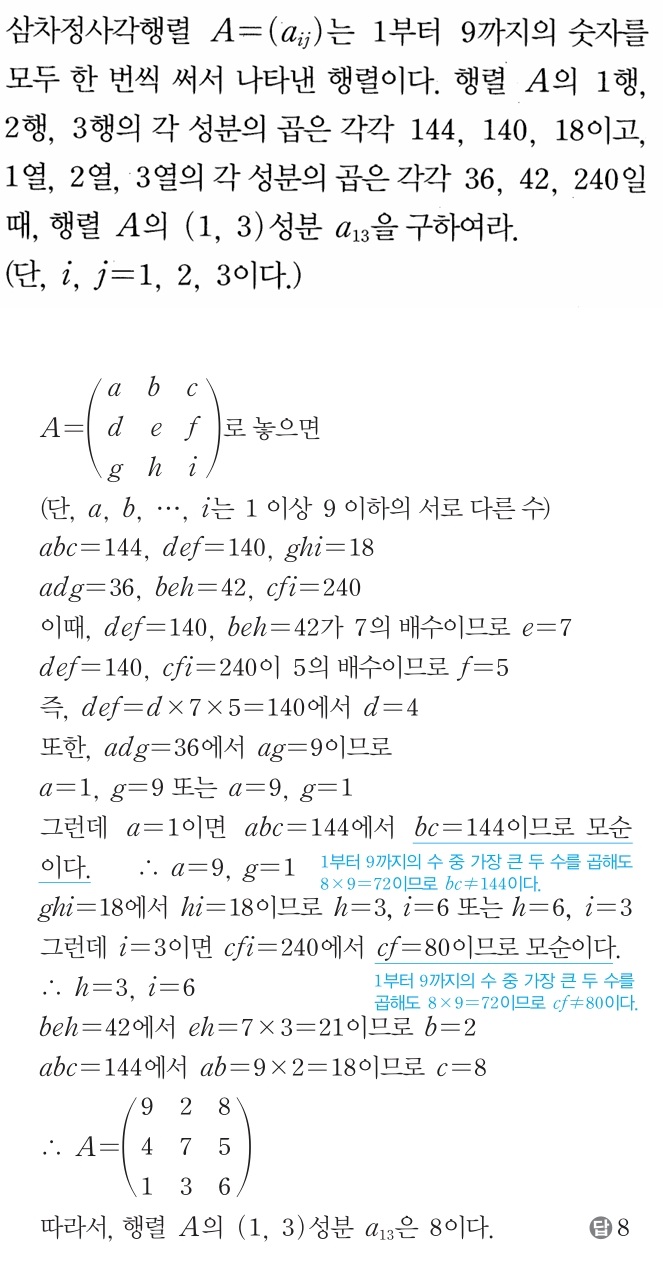 삼차정사각행렬 A=(aᵢⱼ)는 1부터 9까지의 숫자를
모두 한 번씩 써서 나타낸 행렬이다. 행렬 A의 1행,
2행, 3행의 각 성분의 곱은 각각 144, 140, 18이고,
1열, 2열, 3열의 각 성분의 곱은 각각 36, 42, 240일
때, 행렬 A의 (1, 3)성분 a₁₃을 구하여라.
(단, i, j=1, 2, 3이다.)
a b c
A=( d e f )로 놓으면
g h i
(단, a, b, ⋯, i는 1 이상 9 이하의 서로 다른 수)
abc=144, def=140, ghi=18
adg=36, beh=42, cfi=240
이때, def=140, beh=42가 7의 배수이므로 e=7
def=140, cfi=240이 5의 배수이므로 f=5
즉, def=d×7×5=140에서 d=4
또한, adg=36에서 ag=9이므로
a=1, g=9 또는 a=9, g=1
그런데 a=1이면 abc=144에서 bc=144이므로 모순
이다. ∴ a=9, g=1 1부터 9까지의 수 중 가장 큰 두 수를 곱해도
8×9=72이므로 bc≠144이다.
ghi=18에서 hi=18이므로 h=3, i=6 또는 h=6, i=3
그런데 i=3이면 cfi=240에서 cf=80이므로 모순이다.
∴ h=3, i=6 1부터 9까지의 수 중 가장 큰 두 수를
곱해도 8×9=72이므로 cf≠80이다.
beh=42에서 eh=7×3=21이므로 b=2
abc=144에서 ab=9×2=18이므로 c=8
9 2 8
∴ A=( 4 7 5 )
1 3 6
따라서, 행렬 A의 (1, 3)성분 a₁₃은 8이다. 답 8